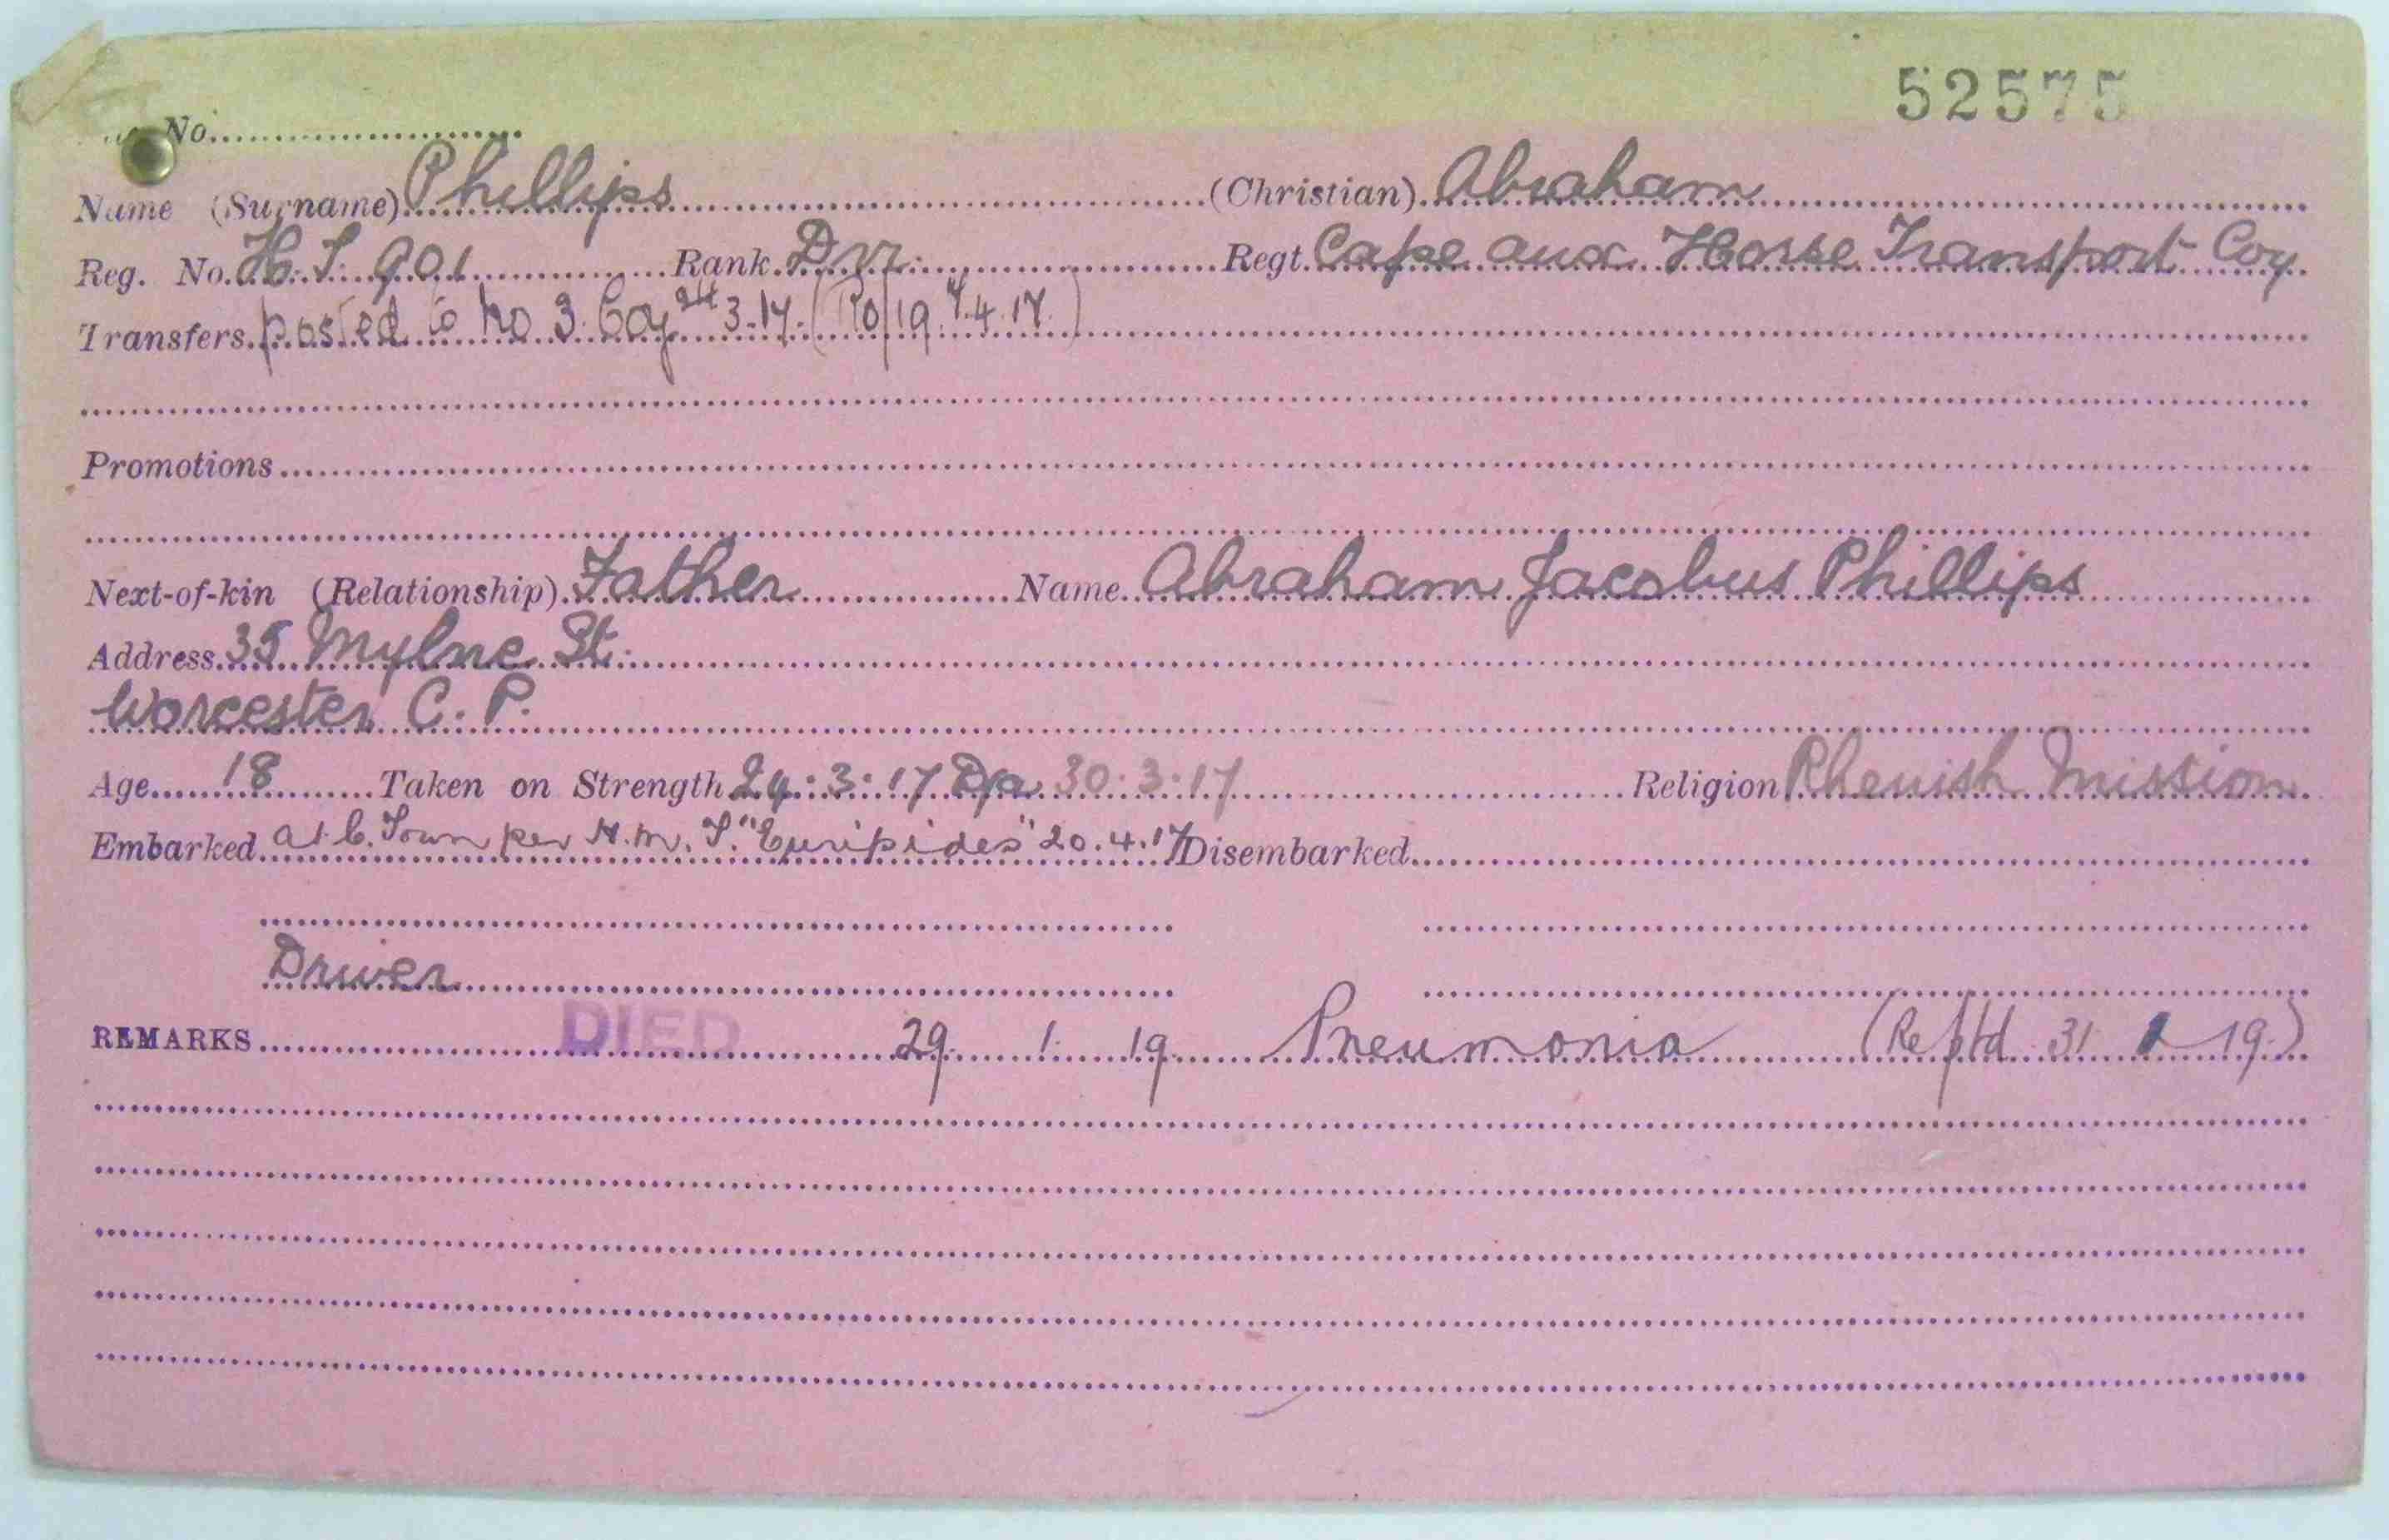 52575
No.
Name (Surname) Phillips (Christian) Abraham
Reg. No. H.T. 901 Rank Dvr. Regt. Cape Aux. Horse Transport Coy.
Transfers posted to No 3 Coy 3.17. (Ro/19 4.17.)
Promotions
Next-of-kin (Relationship) Father Name Abraham Jacobus Phillips
Address 35 Mylne St.
Worcester C. P.
Age 18 Taken on Strength 24:3:17 30:3:17 Religion Rhenish Mission
Embarked at C. Town per H.M.T. "Euripides" 20.4.17 Disembarked
Driver
REMARKS DIED 29. 1. 19. Pneumonia (Reptd 31 19.)